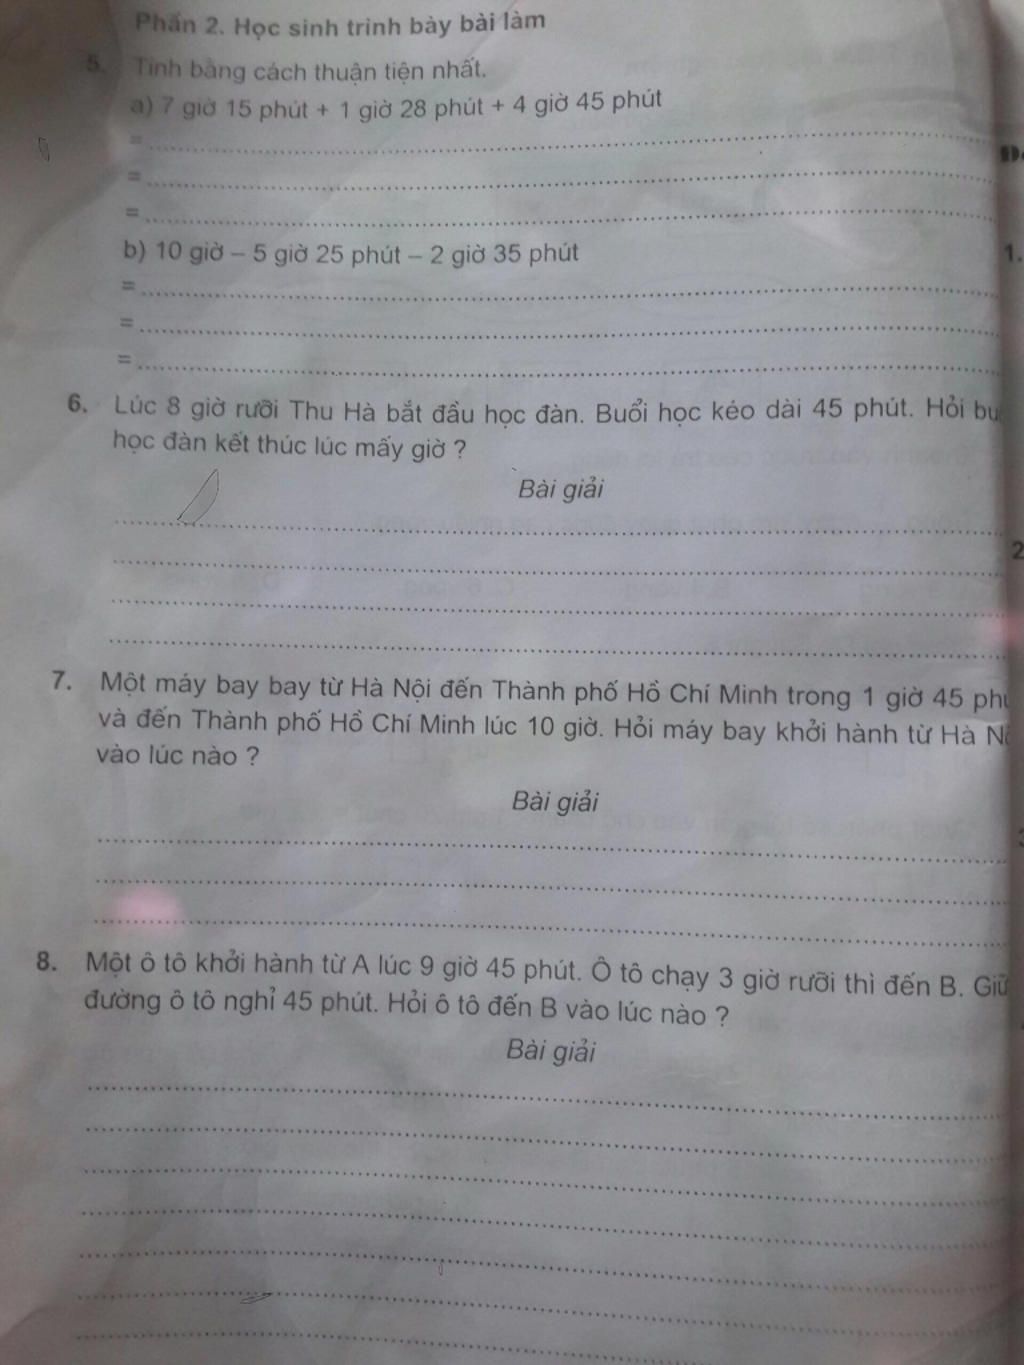 Phần 2. Học sinh trình bày bài làm
5. Tính bằng cách thuận tiện nhất.
a) 7 giờ 15 phút + 1 giờ 28 phút + 4 giờ 45 phút
=
=
=
b) 10 giờ – 5 giờ 25 phút – 2 giờ 35 phút
=
=
=
6. Lúc 8 giờ rưỡi Thu Hà bắt đầu học đàn. Buổi học kéo dài 45 phút. Hỏi
học đàn kết thúc lúc mấy giờ ?
Bài giải
7. Một máy bay bay từ Hà Nội đến Thành phố Hồ Chí Minh trong 1 giờ 45
và đến Thành phố Hồ Chí Minh lúc 10 giờ. Hỏi máy bay khởi hành từ Hà
vào lúc nào ?
Bài giải
8. Một ô tô khởi hành từ A lúc 9 giờ 45 phút. Ô tô chạy 3 giờ rưỡi thì đến B.
đường ô tô nghỉ 45 phút. Hỏi ô tô đến B vào lúc nào ?
Bài giải
1.
2